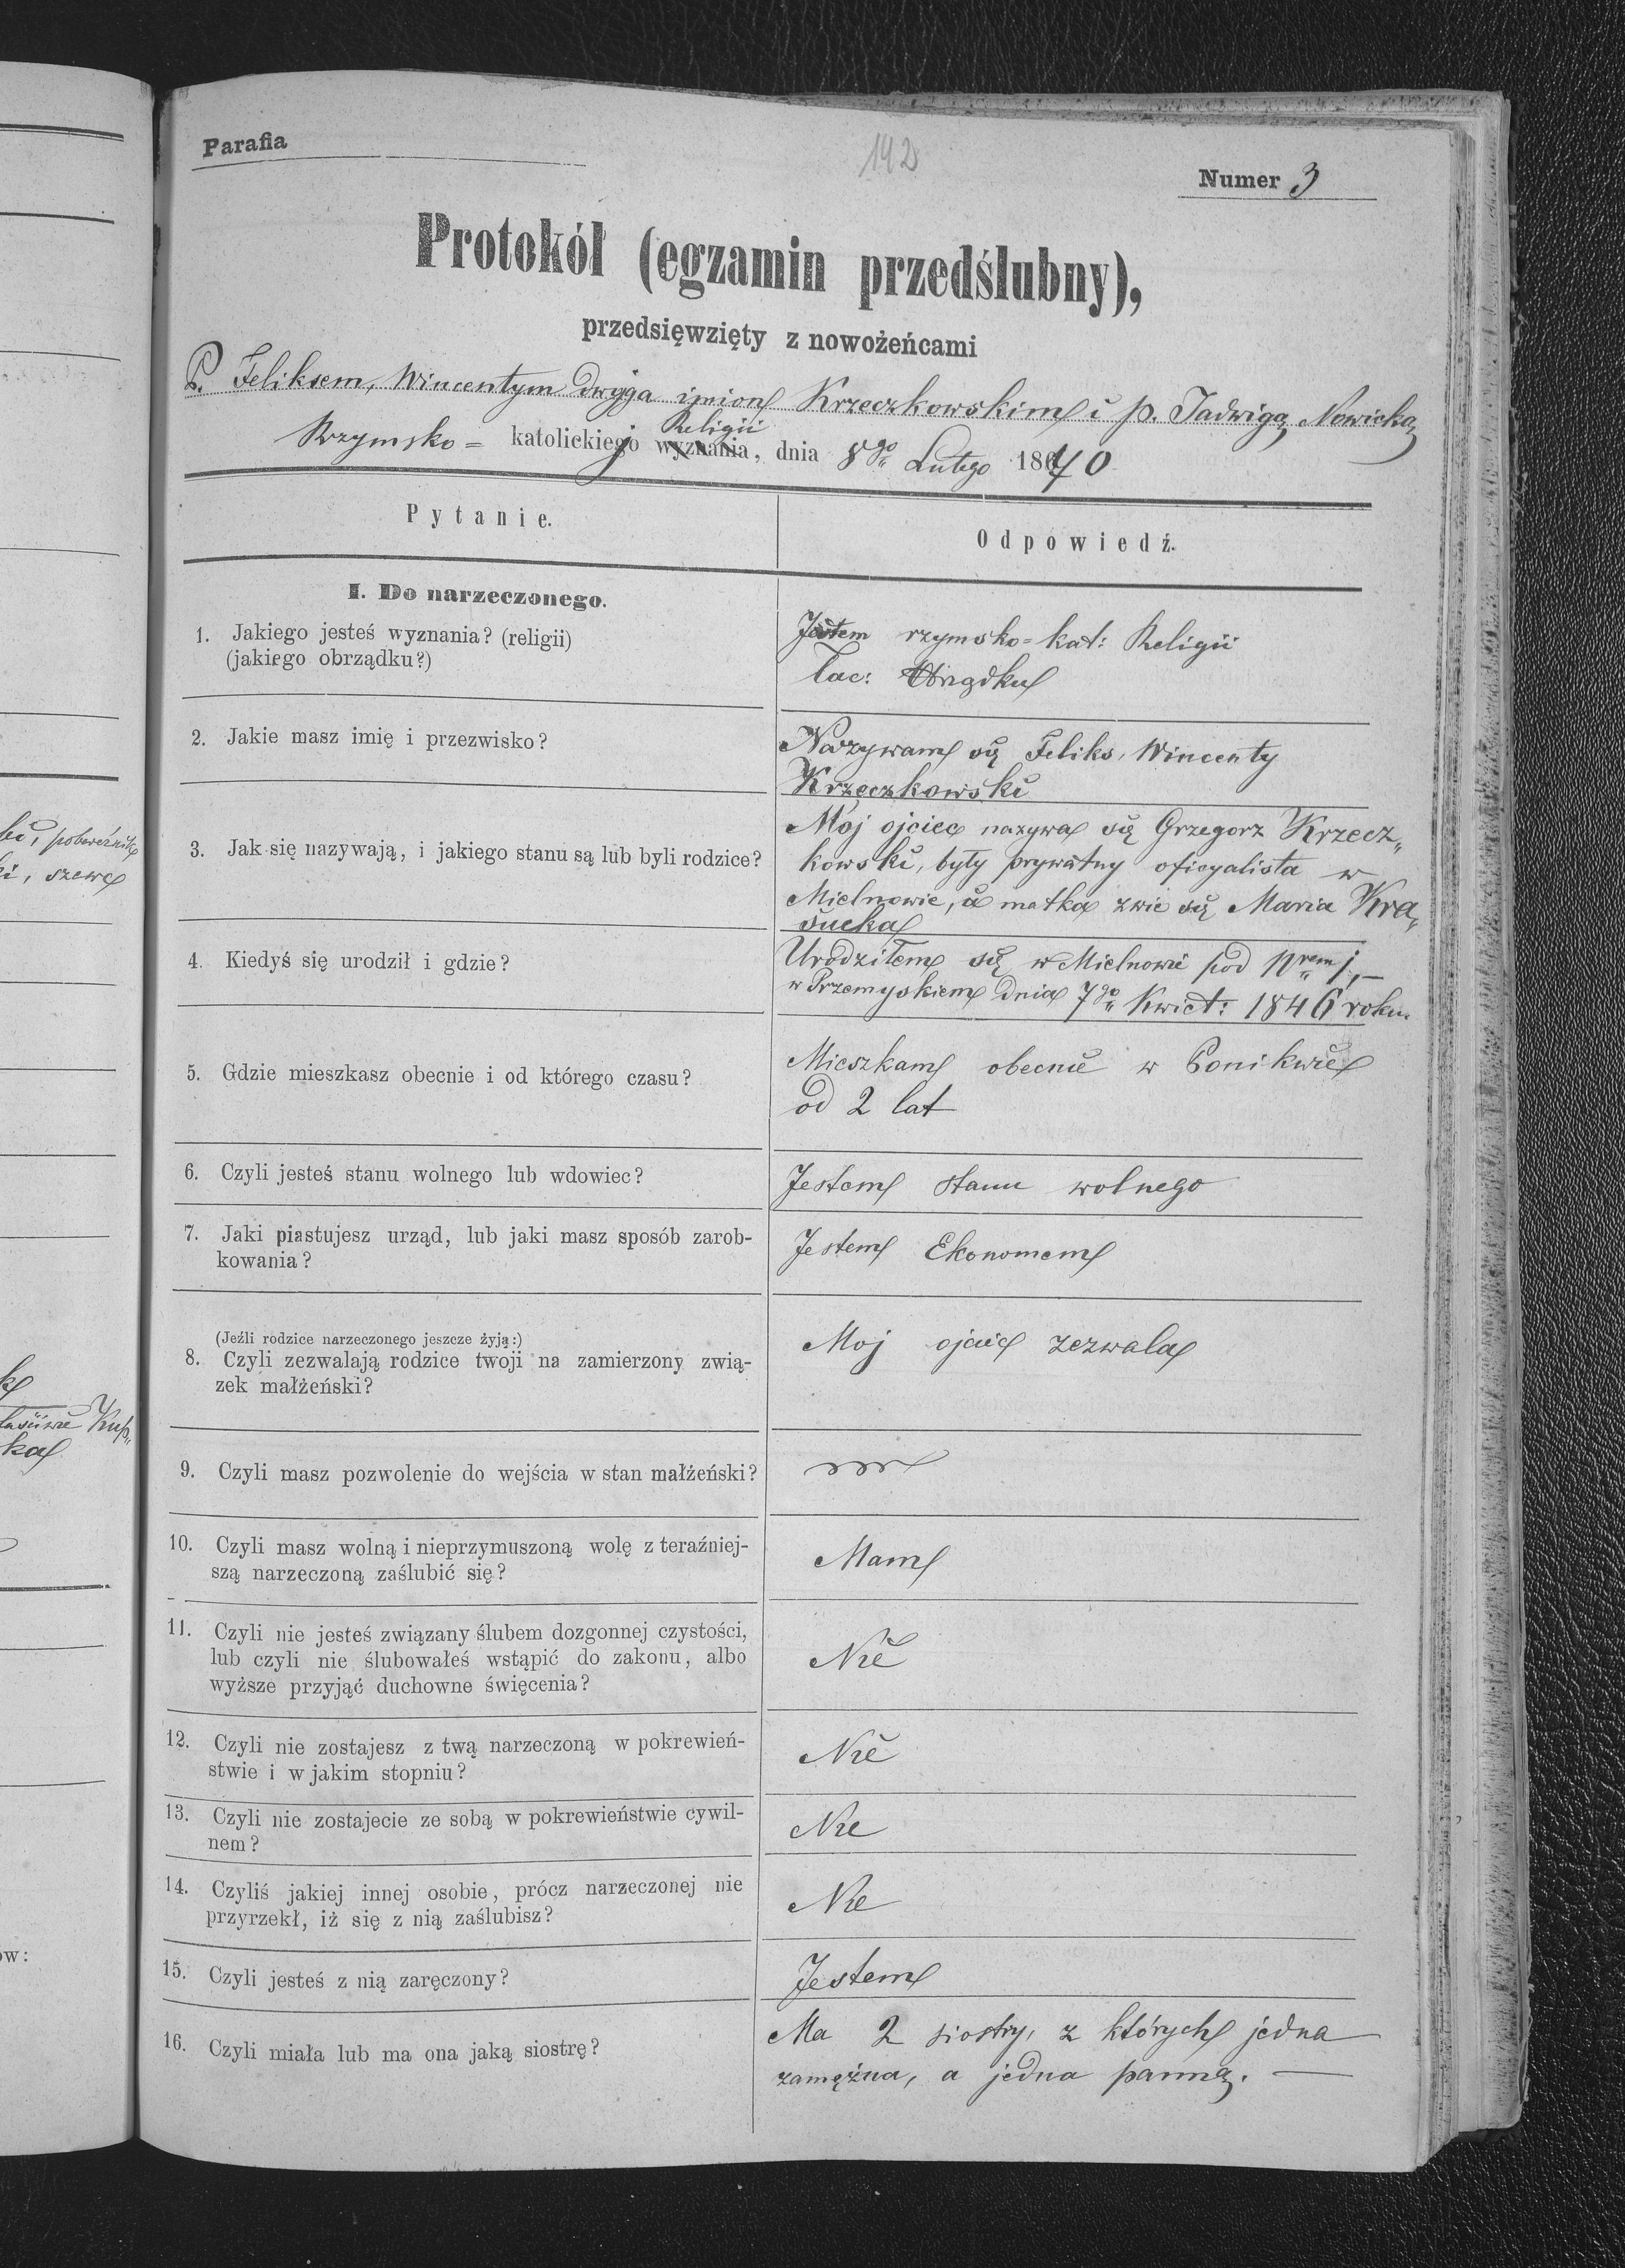 Parafia
192
Numer 3
Protokół (egzamin przedślubny),
przedsięwzięty z nowożeńcami
P. Feliksem, Wincentym dwojga imion Krzeczkowskim i p. Jadwigą Nowicką
Religii
Rzymsko = katolickiej wyznania, dnia 8go Lutego 1870
Pytanie.
Odpowiedź.
I. Do narzeczonego.
1. Jakiego jesteś wyznania? (religii)
(jakiego obrządku?)
Jestem rzymsko-kat: Religii
łac: Obrządku
2. Jakie masz imię i przezwisko?
Nazywam się Feliks, Wincenty
Krzeczkowski
3. Jak się nazywają, i jakiego stanu są lub byli rodzice?
Mój ojciec nazywa się Grzegorz Krzecz„
kowski, były prywatny oficyalista w
Mielnowie, a matka zwie się Maria Kra„
sucka
4. Kiedyś się urodził i gdzie?
Urodziłem się w Mielnowie pod Nrem j,—
w Przemyskiem dnia 7go Kwiet: 1846 roku.
5. Gdzie mieszkasz obecnie i od którego czasu?
Mieszkam obecnie w Ponikwie
od 2 lat
6. Czyli jesteś stanu wolnego lub wdowiec?
Jestem stanu wolnego
7. Jaki piastujesz urząd, lub jaki masz sposób zarob-
kowania?
Jestem Ekonomem
(Jeźli rodzice narzeczonego jeszcze żyją:)
8. Czyli zezwalają rodzice twoji na zamierzony zwią-
zek małżeński?
Moj ojciec zezwala
9. Czyli masz pozwolenie do wejścia w stan małżeński?
10. Czyli masz wolną i nieprzymuszoną wolę z teraźniej-
szą narzeczoną zaślubić się?
Mam
11. Czyli nie jesteś związany ślubem dozgonnej czystości,
lub czyli nie ślubowałeś wstąpić do zakonu, albo
wyższe przyjąć duchowne święcenia?
Nie
12. Czyli nie zostajesz z twą narzeczoną w pokrewień-
stwie i w jakim stopniu?
Nie
13. Czyli nie zostajecie ze sobą w pokrewieństwie cywil-
nem?
Nie
14. Czyliś jakiej innej osobie, prócz narzeczonej nie
przyrzekł, iż się z nią zaślubisz?
Nie
15. Czyli jesteś z nią zaręczony?
Jestem
16. Czyli miała lub ma ona jaką siostrę?
Ma 2 siostry, z których jedna
zamężna, a jedna panną. —
i, szewc
ka
ów: